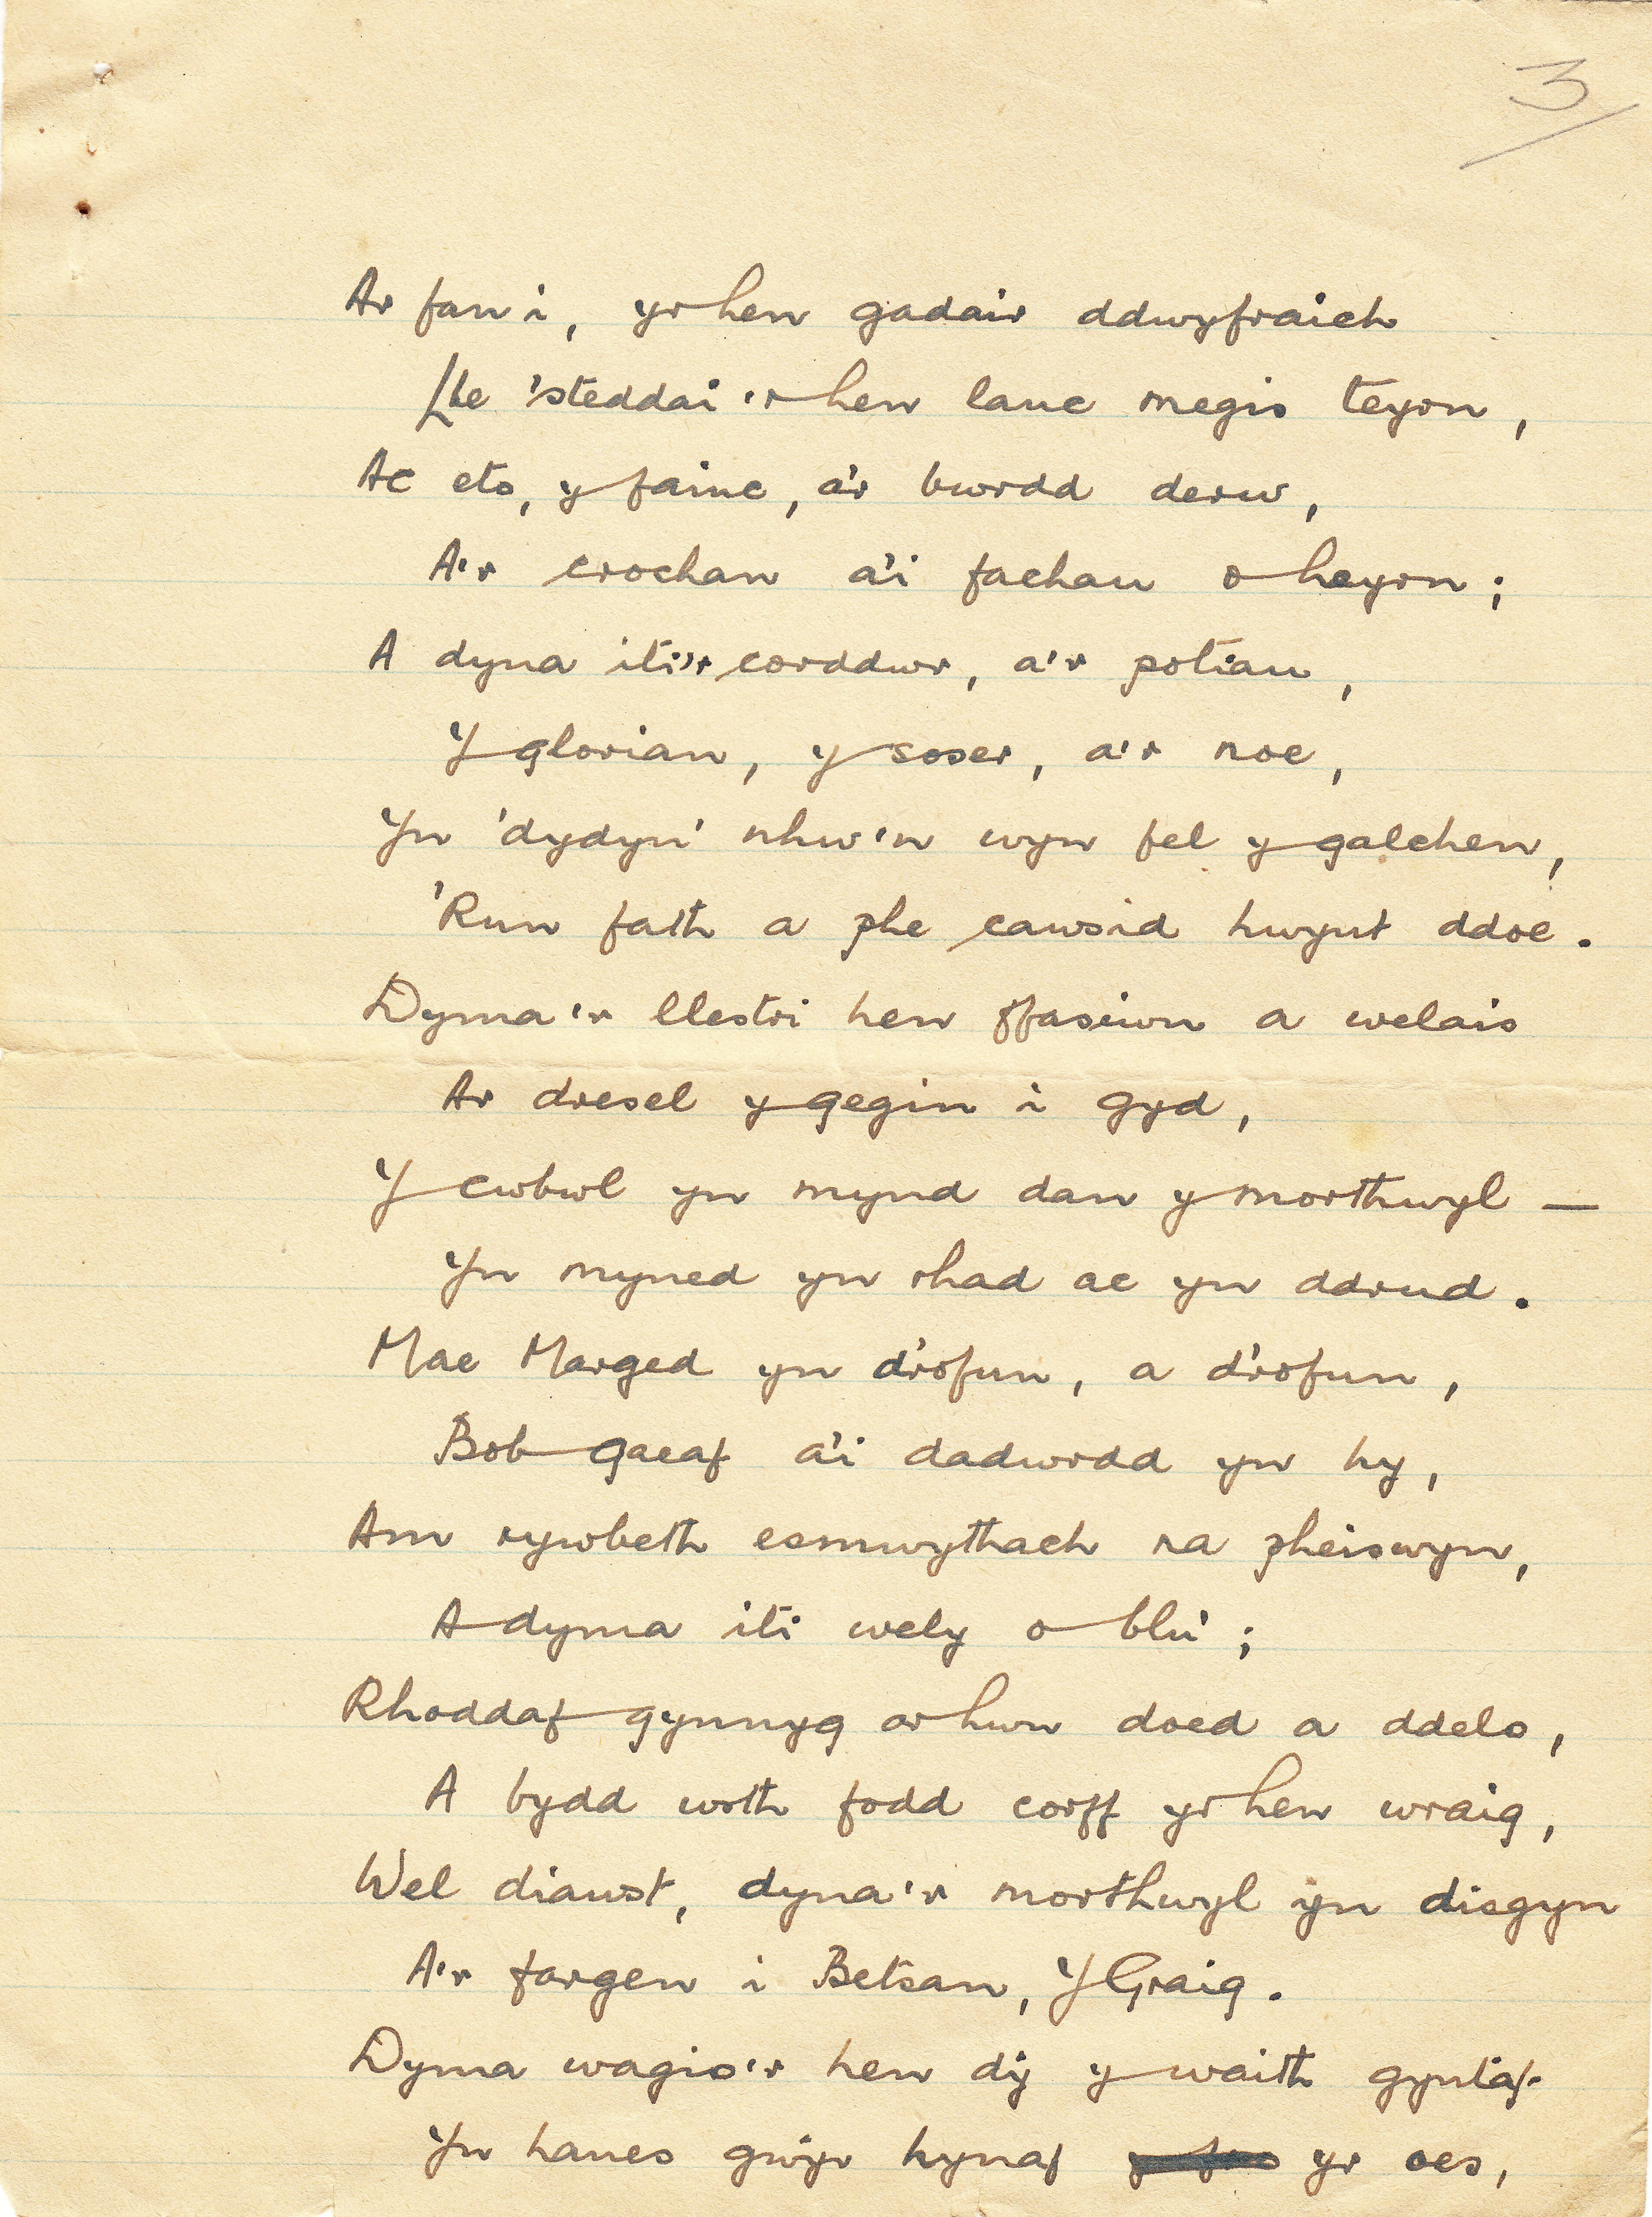 3
Ar fan i, yr hen gadair ddwyfraich
Lle 'steddai 'r hen lanc megis teyrn,
Ac eto, y fainc, a'r bwrdd derw,
A'r crochan a'i fachau o heyrn;
A dyna iti'r corddwr, a'r potiau,
Y glorian, y soser, a'r noe,
Yn 'dydyn' nhw'n wyn fel y galchen,
'Run fath a phe cawsid hwynt ddoe.
Dyma'r llestri hen ffasiwn a welais
Ar dresel y gegin i gyd,
Y cwbwl yn mynd dan y morthwyl —
Yn myned yn rhad ac yn ddrud.
Mae Marged yn d'rofun, a d'rofun,
Bob gaeaf a'i dadwrdd yn hy,
Am rywbeth esmwythach na pheiswyn,
A dyma iti wely o blu;
Rhoddaf gynnyg ar hwn doed a ddelo,
A bydd wrth fodd corff yr hen wraig,
Wel diawst, dyna'r morthwyl yn disgyn
A'r fargen i Betsan, Y Graig.
Dyma wagio'r hen dŷ y waith gyntaf
Yn hanes gwŷr hynaf yr oes,